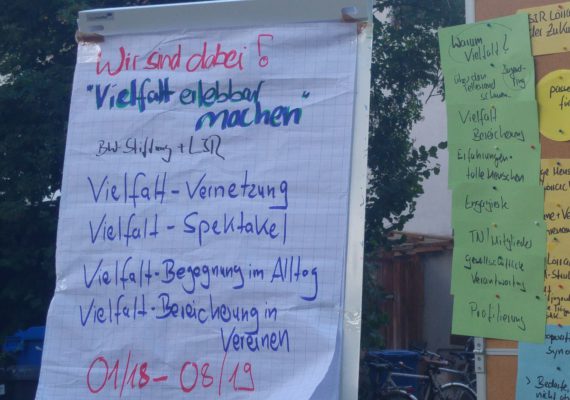 Wir sind dabei!
"Vielfalt erlebbar
machen"
BW-Stiftung + LSR
Vielfalt-Vernetzung
Vielfalt-Spektakel
Vielfalt-Begegnung im Alltag
Vielfalt-Bereicherung in
Vereinen
01/18-08/19
Warum
Vielfalt?
über den
Tellerrand
schauen
Vielfalt
Bereicherung
Erfahrungen
tolle Menschen
TN/Mitglieder
gesellschaftliche
Verantwortung
Profilierung
der Zuku
> Bedarfe
nicht